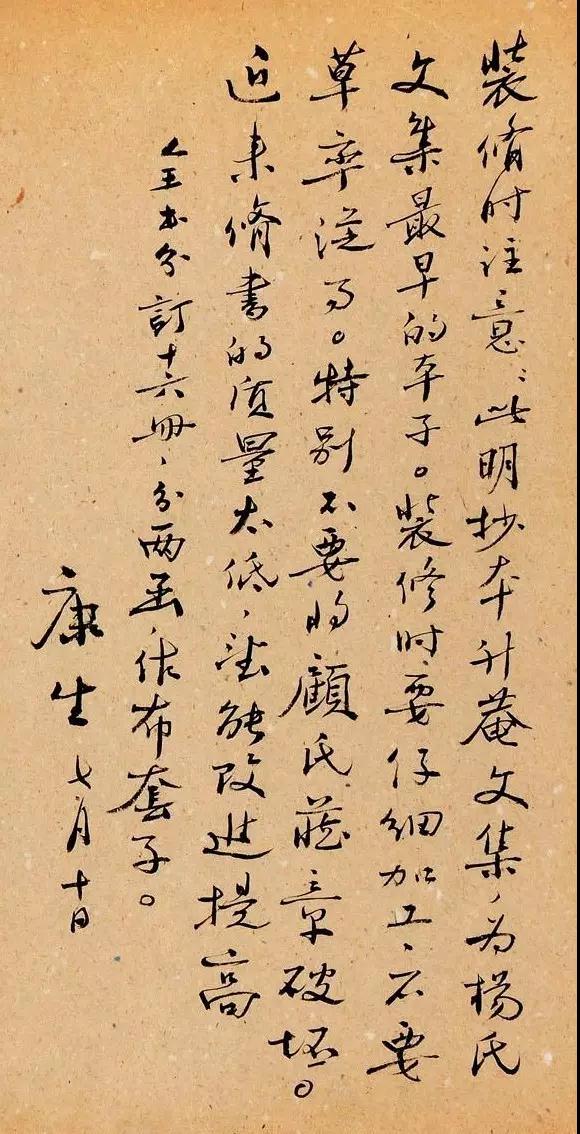 装脩时注意：此明抄本升菴文集，为楊氏
文集最早的本子。装修时要仔细加工、不要
草率從事。特别不要将顧氏藏章破坏。
近来脩書的质量太低，望能改進提高
全书分訂十六册，分两函，作布套子。
康生 七月十日